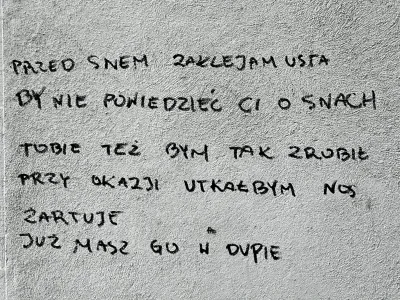 PRZED SNEM ZAKLEJAM USTA
BY NIE POWIEDZIEĆ CI O SNACH
TOBIE TEŻ BYM TAK ZROBIŁ
PRZY OKAZJI UTKAŁBYM NOS
ŻARTUJE
JUŻ MASZ GO W DUPIE